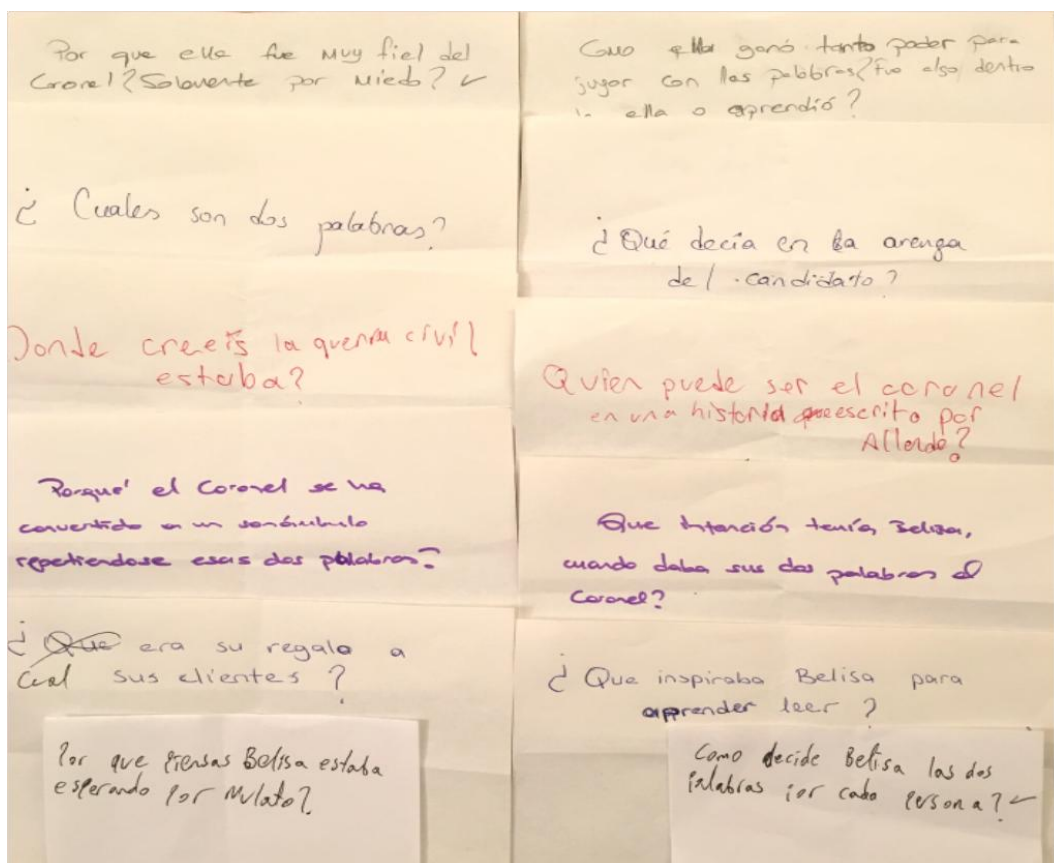 Por que ella fue muy fiel del
Coronel? Solamente por miedo? ✓
¿ Cuales son dos palabras?
Donde creeis la guerra civil
estaba?
Porqué el Coronel se ha
convertido en un sonámbulo
repetiendose esas dos palabras?
¿ Cual era su regalo a
sus clientes ?
Por que piensas Belisa estaba
esperando por Mulato?
Como ella ganó tanto poder para
jugar con las palabras? fue algo dentro
ella o aprendió?
¿ Qué decía en la arenga
del candidato?
Quien puede ser el coronel
en una historia escrito por
Allende?
Que intención tenía Belisa,
cuando daba sus dos palabras al
Coronel?
¿ Que inspiraba Belisa para
aprender leer ?
Como decide Belisa las dos
palabras por cada persona? ✓